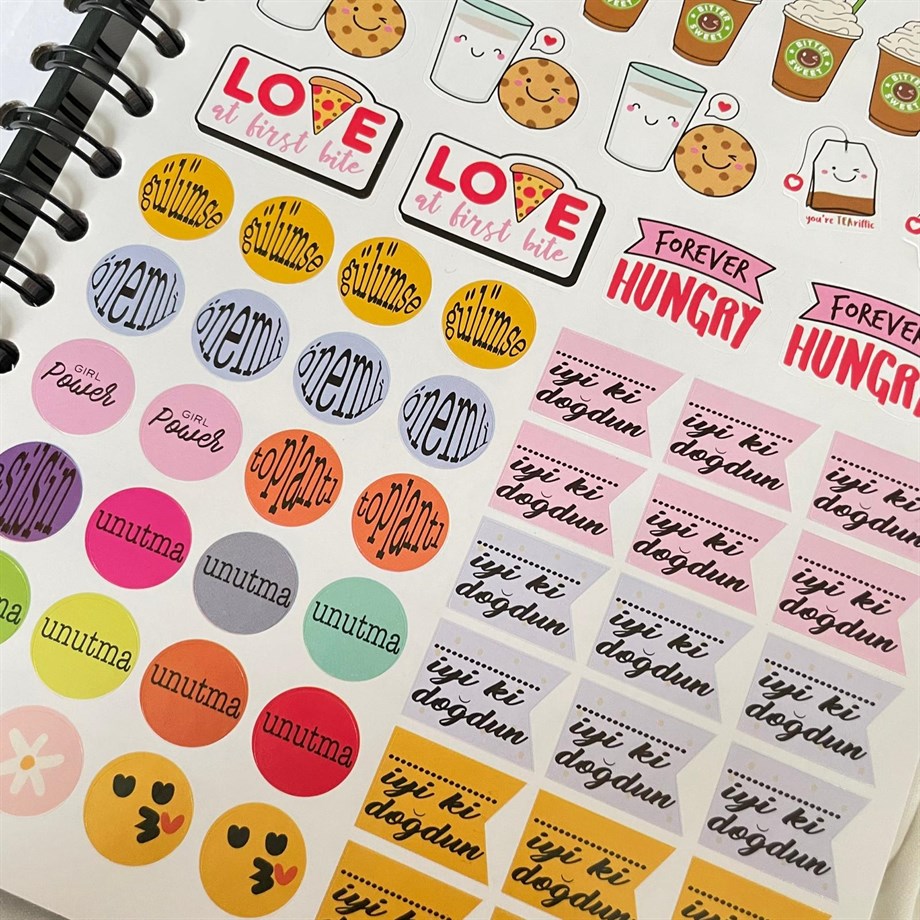 BITTER
SWEET
BITTER
SWEET
BITTER
SWEET
LOVE
at first bite
LOVE
at first bite
you're TEAriffic
FOREVER
HUNGRY
FOREVER
HUNGRY
gülümse
gülümse
gülümse
gülümse
önemli
önemli
önemli
önemli
GIRL
Power
GIRL
Power
toplantı
toplantı
unutma
unutma
unutma
unutma
unutma
unutma
iyi ki
doğdun
iyi ki
doğdun
iyi ki
doğdun
iyi ki
doğdun
iyi ki
doğdun
iyi ki
doğdun
iyi ki
doğdun
iyi ki
doğdun
iyi ki
doğdun
iyi ki
doğdun
iyi ki
doğdun
iyi ki
doğdun
iyi ki
doğdun
iyi ki
doğdun
iyi ki
iyi ki